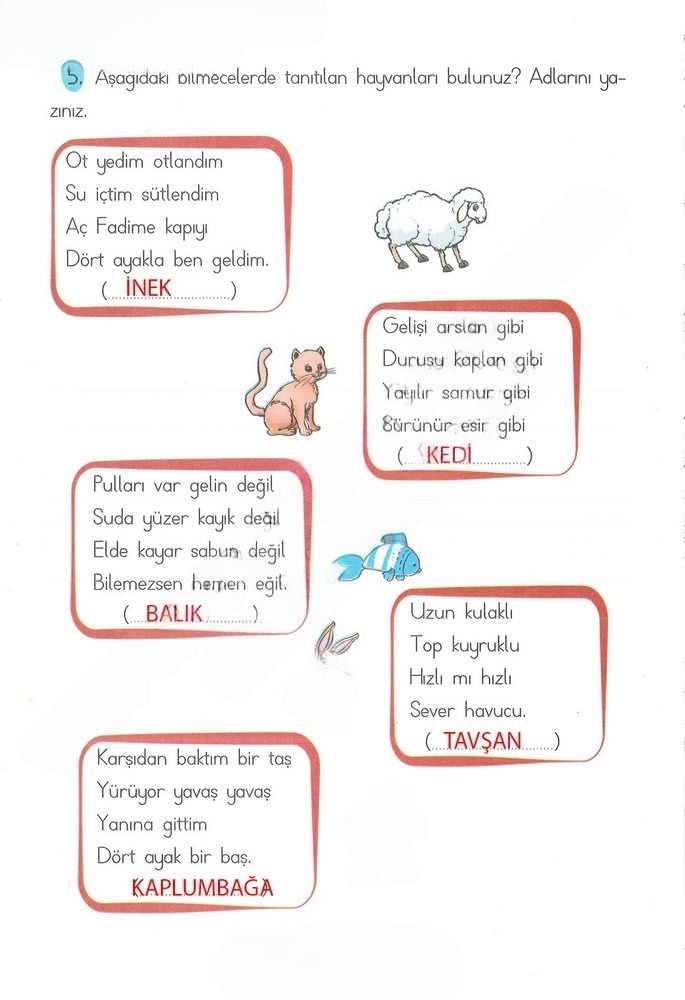 5. Aşağıdaki bilmecelerde tanıtılan hayvanları bulunuz? Adlarını ya-
zınız.
Ot yedim otlandım
Su içtim sütlendim
Aç Fadime kapıyı
Dört ayakla ben geldim.
(....İNEK....)
Gelişi arslan gibi
Durusu kaplan gibi
Yayılır samur gibi
Sürünür esir gibi
(....KEDİ....)
Pulları var gelin değil
Suda yüzer kayık değil
Elde kayar sabun değil
Bilemezsen hemen eğil.
(....BALIK....)
Uzun kulaklı
Top kuyruklu
Hızlı mı hızlı
Sever havucu.
(....TAVŞAN....)
Karşıdan baktım bir taş
Yürüyor yavaş yavaş
Yanına gittim
Dört ayak bir baş.
(KAPLUMBAĞA)